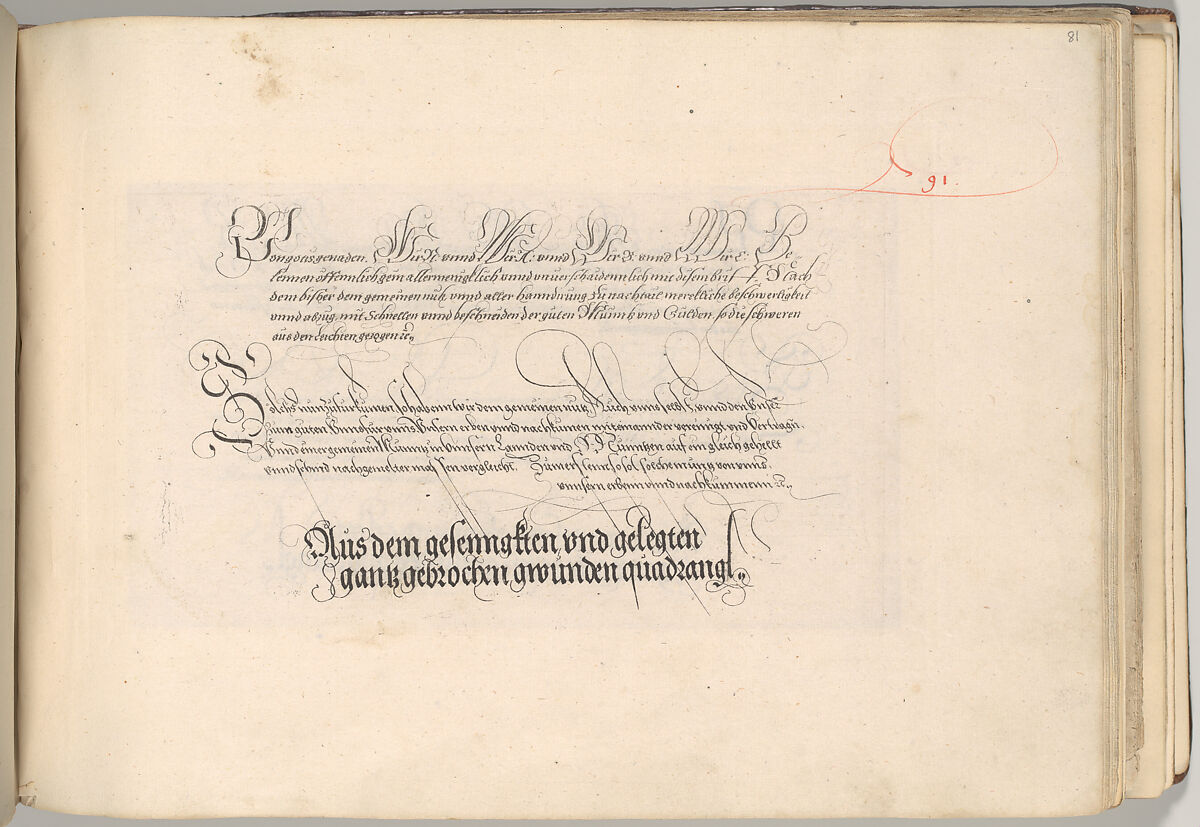 81
91.
Von gots genaden. Wir A: vnnd Wir K: vnnd Wir E: Be⸗
kennen öffennlich gein allermenigklich vnnd vnuerschaidennlich mit disem brif Nach
dem bißher dem gemeinen nutz vnnd aller hanndtirung zu nachtail merckliche beschwerligkeit
vnnd abzug, mit Schnellen vnnd beschneiden der guten Münntz vnd Gulden, so die schweren
aus den leichten gezogen
Solchs nun zufürkumen, so haben wir dem gemeinen nutz, Auch vnns selbs, vnnd den Vnsern
zum guten, Vnns für vnns Vnsern erben vnnd nachkumen miteinannder vereinigt vnd Vertragn,
Vnnd einer gemeinen Münntz in Vnnsern Lannden vnd auf ein gleich gehellt
vnnd sein nachgemelter massen vergleicht, Zum ersten so sol solchs von vnns,
vnnsern erbenn vnnd nachkummenn
Aus dem gesenngkten, vnd gelegten
gantz gebrochen, gwunden quadrangl